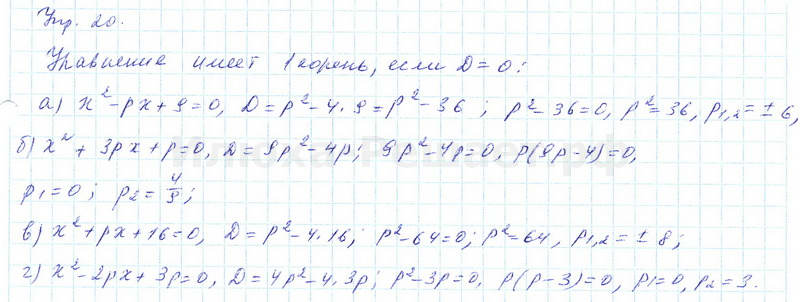 Упр. 20.
Уравнение имеет 1 корень, если D = 0:
а) x² - px + 9 = 0, D = p² - 4·9 = p² - 36 ; p² - 36 = 0, p² = 36, p₁,₂ = ± 6,
б) x² + 3px + p = 0, D = 9p² - 4p; 9p² - 4p = 0, p(9p - 4) = 0,
p₁ = 0 ; p₂ = 4/9 ;
в) x² + px + 16 = 0, D = p² - 4·16; p² - 64 = 0; p² = 64, p₁,₂ = ± 8;
г) x² - 2px + 3p = 0, D = 4p² - 4·3p; p² - 3p = 0, p(p - 3) = 0, p₁ = 0, p₂ = 3.